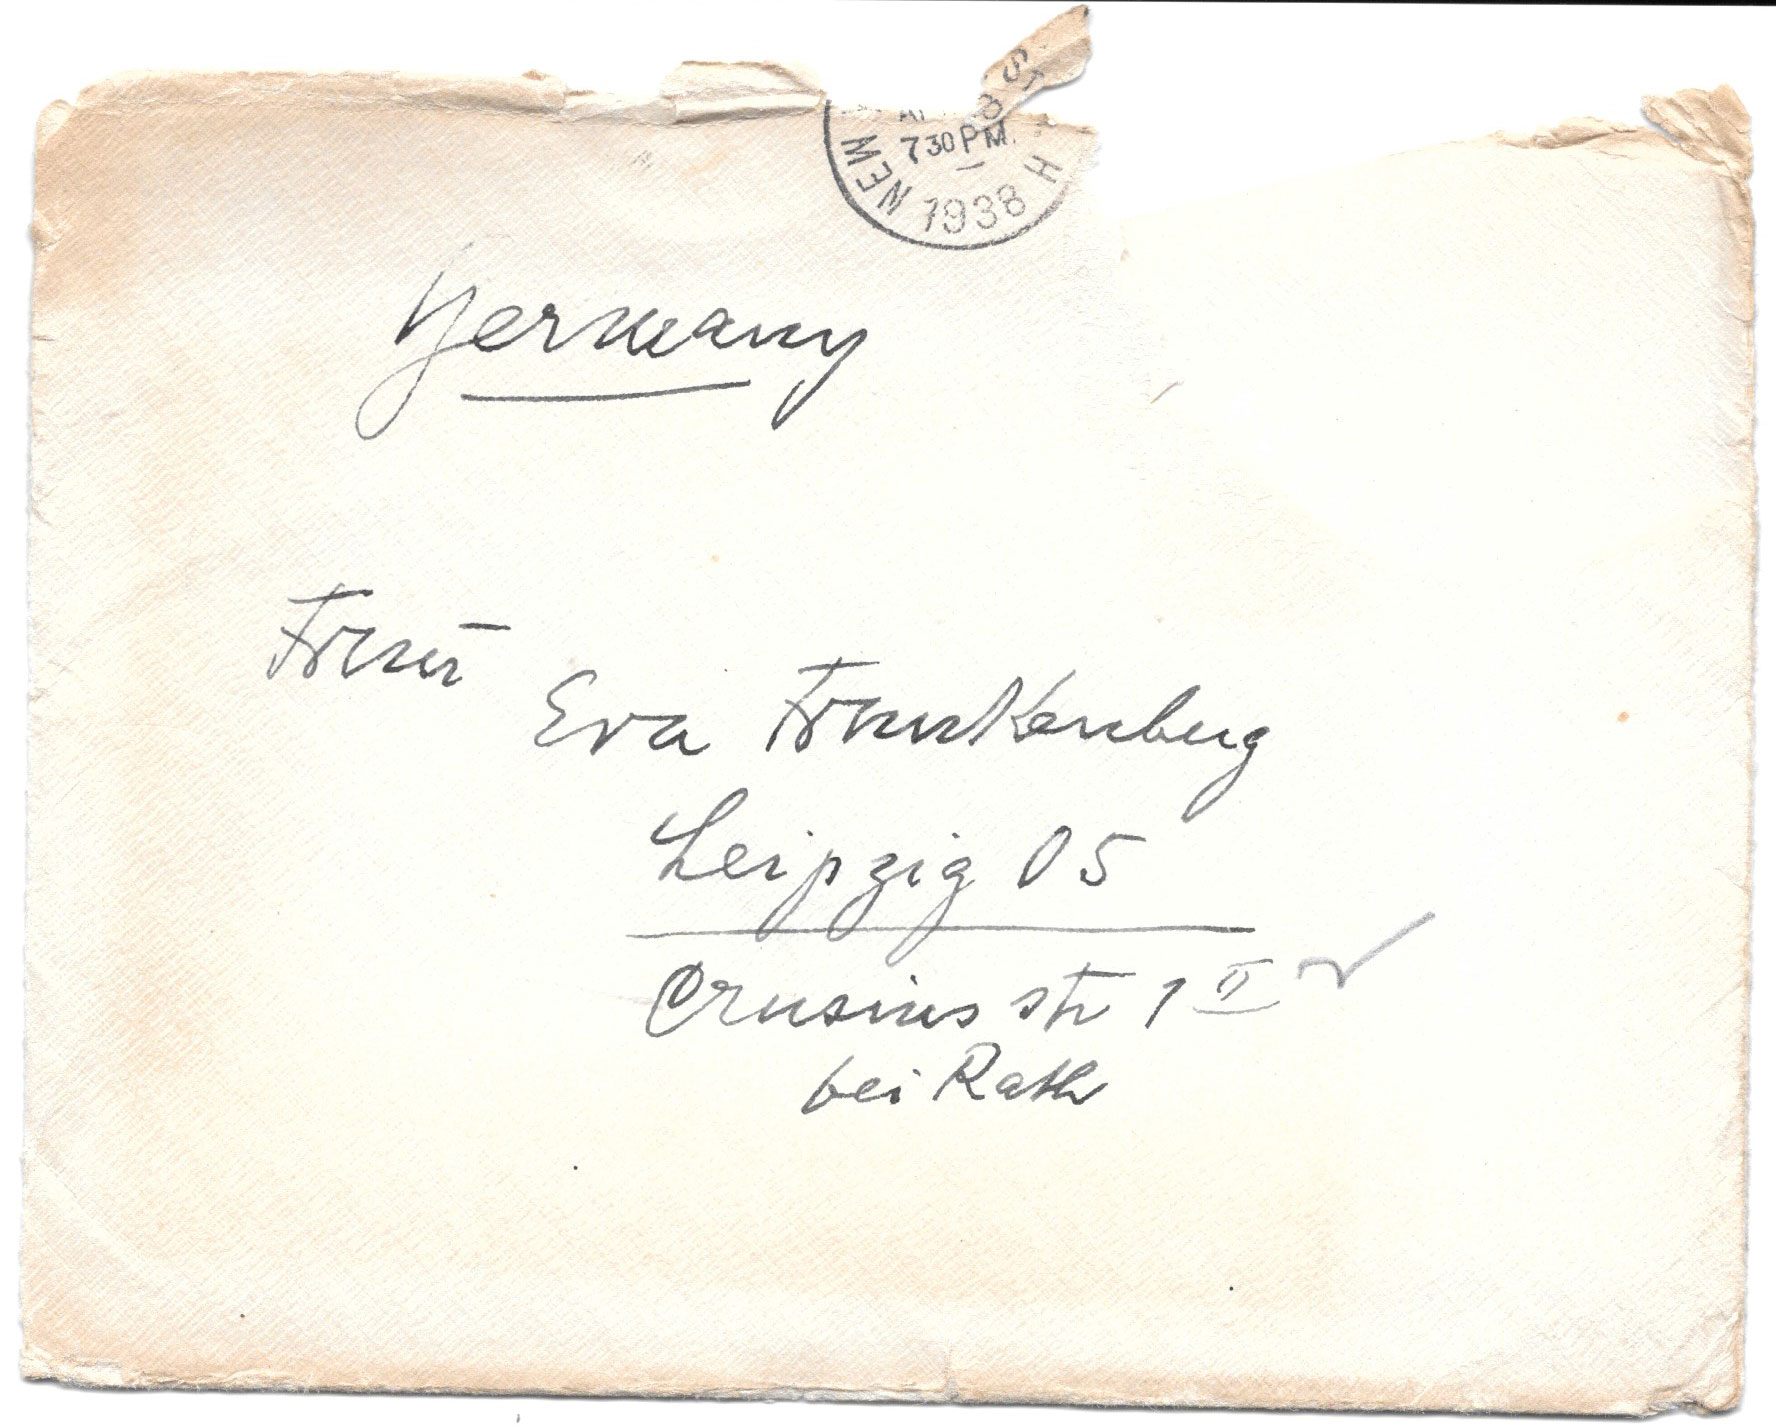 ST
7 30 PM.
NEW H
1938
Germany
Frau
Eva Frankenberg
Leipzig O5
Crusius str 1 II
bei Rath